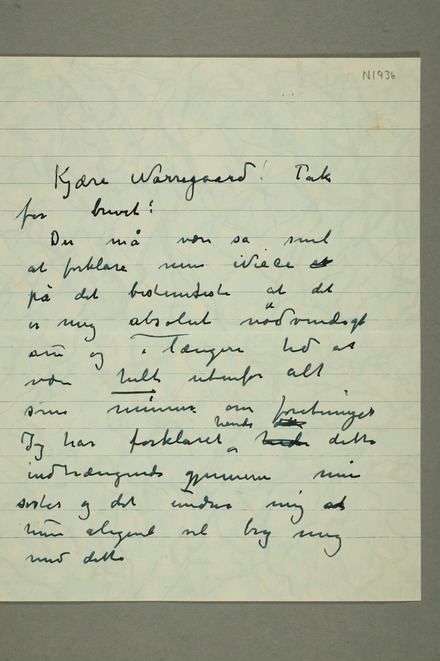 N1936
Kjære Nørregaard! Tak
for brevet!
Du må være så snil
at forklare
på det bestemteste at det
er mig absolut nödvendigt
nu og i længere tid at
være helt utenfor alt
som minner om forretninger
Jeg har forklaret hende dette
indtrængende gjennem min
søster og det undrer mig at
hun alligevel vil bry mig
med dette